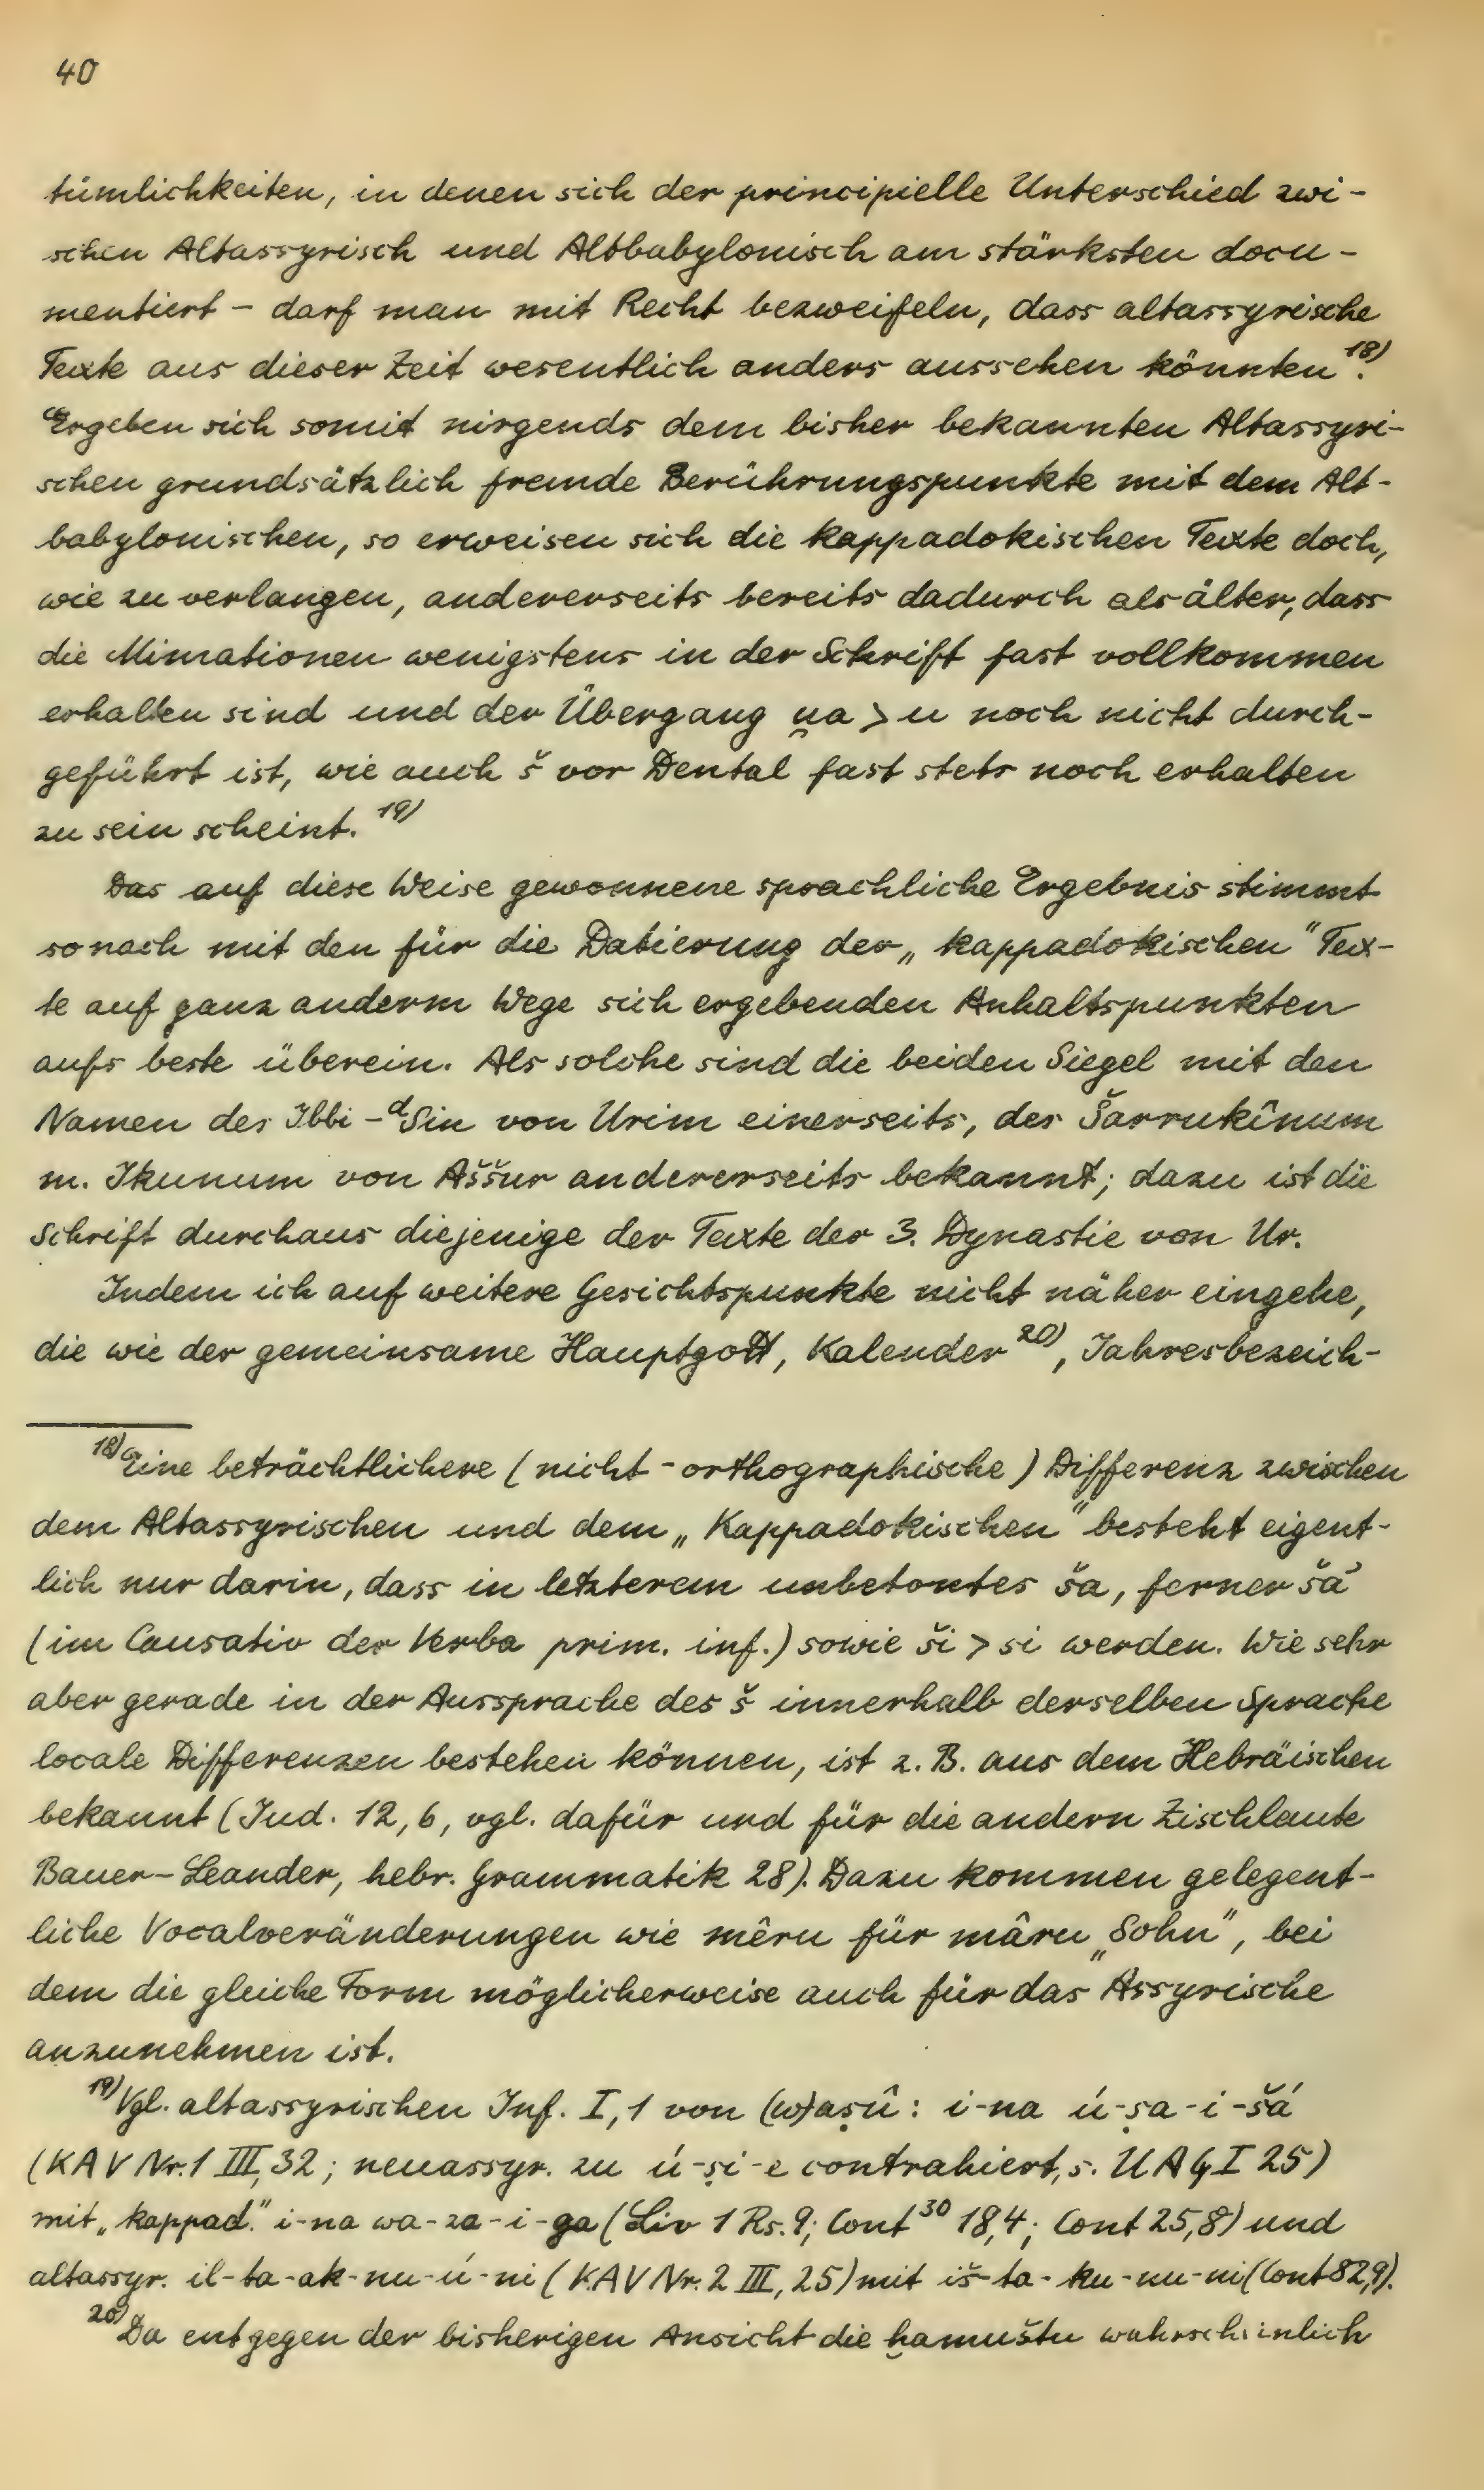 40
tümlichkeiten, in denen sich der principielle Unterschied zwi-
schen Altassyrisch und Altbabylonisch am stärksten docu-
mentiert - darf man mit Recht bezweifeln, dass altassyrische
Texte aus dieser Zeit wesentlich anders aussehen könnten¹⁸⁾.
Ergeben sich somit nirgends dem bisher bekannten Altassyri-
schen grundsätzlich fremde Berührungspunkte mit dem Alt-
babylonischen, so erweisen sich die kappadokischen Texte doch,
wie zu verlangen, andererseits bereits dadurch als älter, dass
die Mimationen wenigstens in der Schrift fast vollkommen
erhalten sind und der Übergang u̯a > u noch nicht durch-
geführt ist, wie auch š vor Dental fast stets noch erhalten
zu sein scheint.¹⁹⁾
Das auf diese Weise gewonnene sprachliche Ergebnis stimmt
sonach mit den für die Datierung der „kappadokischen" Tex-
te auf ganz anderm Wege sich ergebenden Anhaltspunkten
aufs beste überein. Als solche sind die beiden Siegel mit den
Namen des Ibbi-ᵈSin von Urim einerseits, des Šarrukînum
m. Ikunum von Aššur andererseits bekannt; dazu ist die
Schrift durchaus diejenige der Texte der 3. Dynastie von Ur.
Indem ich auf weitere Gesichtspunkte nicht näher eingehe,
die wie der gemeinsame Hauptgott, Kalender²⁰⁾, Jahresbezeich-
¹⁸⁾Eine beträchtlichere (nicht-orthographische) Differenz zwischen
dem Altassyrischen und dem „Kappadokischen" besteht eigent-
lich nur darin, dass in letzterem unbetontes ša, ferner šá
(im Causativ der Verba prim. inf.) sowie ši > si werden. Wie sehr
aber gerade in der Aussprache des š innerhalb derselben Sprache
locale Differenzen bestehen können, ist z. B. aus dem Hebräischen
bekannt (Jud. 12, 6, vgl. dafür und für die andern Zischlaute
Bauer-Leander, hebr. Grammatik 28). Dazu kommen gelegent-
liche Vocalveränderungen wie mêru für mâru „Sohn", bei
dem die gleiche Form möglicherweise auch für das Assyrische
anzunehmen ist.
¹⁹⁾Vgl. altassyrischen Inf. I, 1 von (w)aṣû: i-na ú-ṣa-i-šá
(KAV Nr. 1 III, 32; neuassyr. zu ú-ṣi-e contrahiert, s. UAG I 25)
mit „kappad." i-na wa-za-i-ga (Liv 1 Rs. 9; Cont³⁰ 18,4; Cont 25,8) und
altassyr. il-ta-ak-nu-ú-ni (KAV Nr. 2 III, 25) mit iš-ta-ku-nu-ni (Cont 82,9).
²⁰⁾Da entgegen der bisherigen Ansicht die ḫamuštu wahrscheinlich